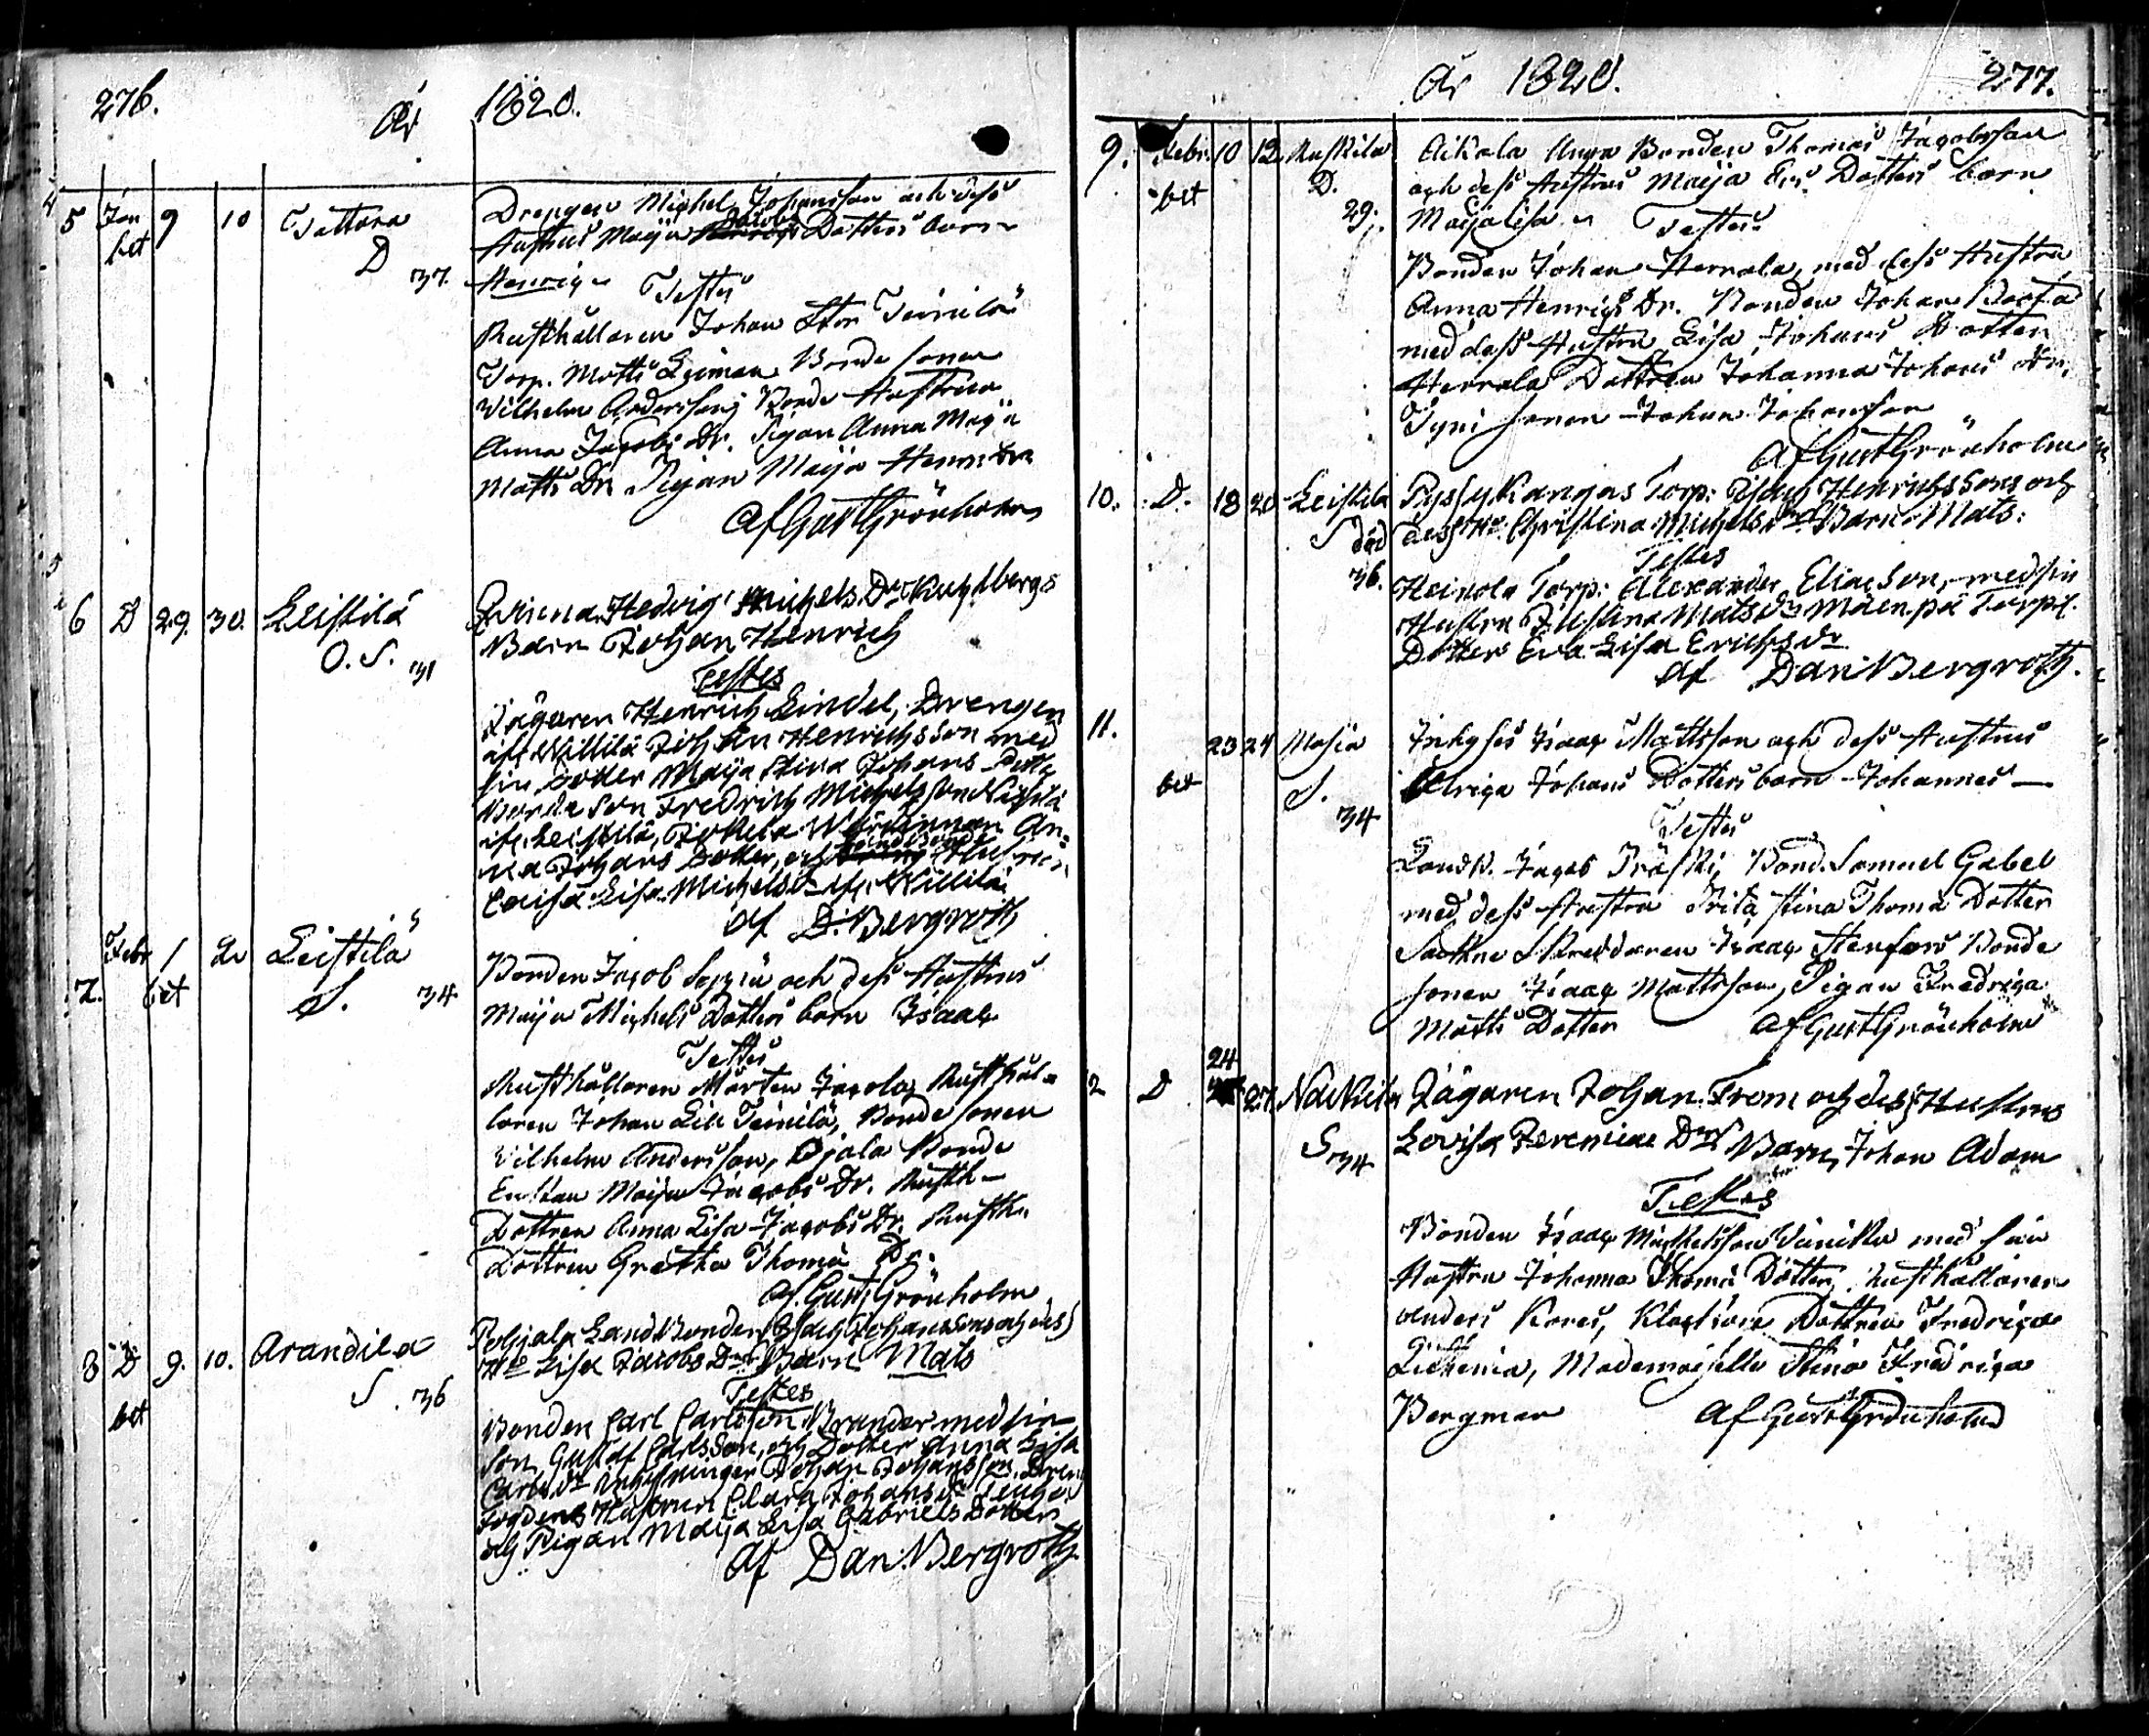 276.
År 1820.
5 Jan 9 10 Tattara
bet
D 37.
Drengen Michel Johansson och dess
Hustrus Maija Jacobs Dotters barn
Henric Testes
Rusthållaren Johan Stor Teinilä
Torp. Matts Leiman Bonde sonen
Wilhelm Andersson, Bonde Hustrun
Anna Jacobs Dr. Pigan Anna Maja
Matts Dr. Pigan Maija Henr: Dr
Af Gust Grönholm
6 D 29. 30. Leistilä
O. S. 31
Hedvig Michels Dr
Barn Johan Henrich
Testes
Jägaren Henrich Lindel, Drengen
ifr. Willilä Johan Henrichsson med
sin Doter Maija Stina Johans Dotter
Bonde Son Fredrich Michelsson
ifr. Leistilä, Jokela Wärdinnan An-
na Johans Dotter, och
Lisa Michels Dr ifr. Willilä
af D. Bergroth
7. Febr 1 2 Leistilä
bet
S. 34
Bonden Jacob Seppä och dess Hustrus
Maija Michels Dotters barn Isaac
Testes
Rusthållaren Mårten Jacola, Rusthål-
laren Johan Lill Teinilä, Bonde sonen
Wilhelm Andersson, Ojala Bonde
Enkan Maija Jacobs Dr. Rusth-
Dottren Anna Lisa Jacobs Dr. Rusth.
Dottren Gretha Thomæ Dr.
Af. Gust Grönholm
8 D 9. 10. Arandila
bet
S 36
Pohjala Landbonden Isach Johanssons och dess
Hu Lisa Jacobs Drs Barn Mats
Testes
Bonden Carl Carlsson Brander med sin
Son Gustaf Carlsson, och Dotter Anna Lisa
Carls dr Johan Johansson,
Hustrun Clara Johans dr
och Pigan Maija Lisa Gabriels Dotter
af Dan: Bergroth
År 1820. 277.
9. Febr. 10 12 Ruskila
bet
D.
29.
Aikala Unga Bonden Thomas Jacobsson
och dess Hustrus Maija Dotters barn
Maja Lisa Testes
Bonden Johan Herrala, med dess Hustru
Anna Henrics Dr. Bonden Johan
med dess Hustru Lisa Johans Dotter
Herrala Dottren Johanna Johans Dr.
sonen Johan Johansson
Af Gust Grönholm
10. D. 18 20 Leistila
S död
36.
Pyssykangas Torp: Henrichs Sons och
dess Hu Christina Michels Drs Barn Mats:
Testes
Heinola Torp: Alexander Elias Son, med sin
Hustru Justina Mats dr Mäenpä Torps.
Dotter Eva Lisa Erichs dr
af Dan: Bergroth.
11. 23 24 Masia
bet
S.
34
Isaac Mattsson och dess Hustrus
Ulrica Johans Dotters barn Johannes —
Testes
Landb. Jacob Präski, Bond. Samuel Gabel
med dess Hustru Brita Stina Thomæ Dotter
Sockne Skreddaren Isaac Stenfors Bonde
sonen Isaac Mattsson, Pigan Fredrica
Matts Dotter Af Gust Grönholm
2 D 24 27. Nackila
S 34
Jägaren Johan From och dess Hustrus
Lovisa Jeremiæ Drs Barn, Johan Adam
Testes
Bonden Isaac Michelsson Vinikka med sin
Hustru Johanna Thomæ Dotter, Rusthållaren
Anders Kares, Klockare Dottren Fredrica
Mademoiselle Stina Fredrica
Bergman Af Gust Grönholm